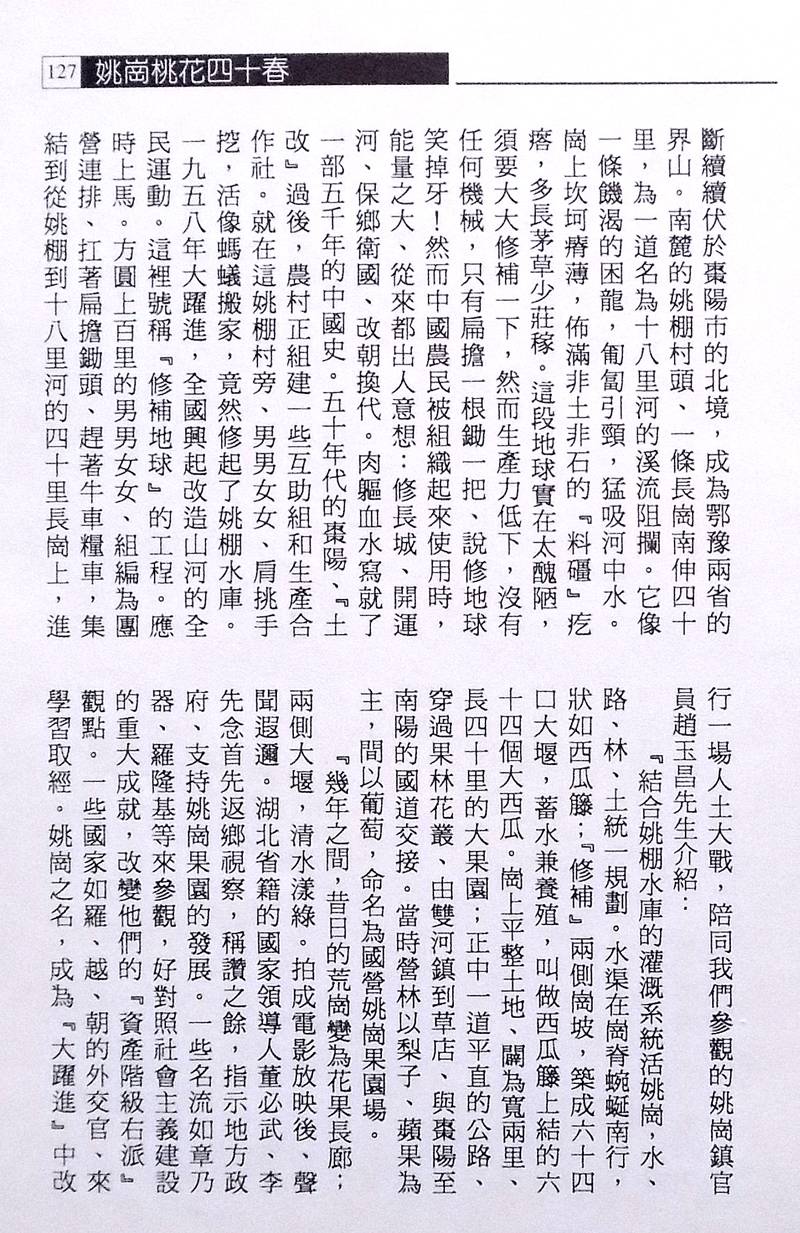 127 姚崗桃花四十春
斷續續伏於棗陽市的北境，成為鄂豫兩省的
界山。南麓的姚棚村頭、一條長崗南伸四十
里，為一道名為十八里河的溪流阻攔。它像
一條饑渴的困龍，匍匐引頸，猛吸河中水。
崗上坎坷瘠薄，佈滿非土非石的『料礓』疙
瘩，多長茅草少莊稼。這段地球實在太醜陋，
須要大大修補一下，然而生產力低下，沒有
任何機械，只有扁擔一根鋤一把、說修地球
笑掉牙！然而中國農民被組織起來使用時，
能量之大、從來都出人意想：修長城、開運
河、保鄉衛國、改朝換代。肉軀血水寫就了
一部五千年的中國史。五十年代的棗陽、『土
改』過後，農村正組建一些互助組和生產合
作社。就在這姚棚村旁、男男女女、肩挑手
挖，活像螞蟻搬家，竟然修起了姚棚水庫。
一九五八年大躍進，全國興起改造山河的全
民運動。這裡號稱『修補地球』的工程。應
時上馬。方圓上百里的男男女女、組編為團
營連排、扛著扁擔鋤頭、趕著牛車糧車，集
結到從姚棚到十八里河的四十里長崗上，進
行一場人土大戰，陪同我們參觀的姚崗鎮官
員趙玉昌先生介紹：
『結合姚棚水庫的灌溉系統活姚崗，水、
路、林、土統一規劃。水渠在崗脊蜿蜒南行，
狀如西瓜籐；『修補』兩側崗坡，築成六十四
口大堰，蓄水兼養殖，叫做西瓜籐上結的六
十四個大西瓜。崗上平整土地、闢為寬兩里、
長四十里的大果園；正中一道平直的公路、
穿過果林花叢、由雙河鎮到草店、與棗陽至
南陽的國道交接。當時營林以梨子、蘋果為
主，間以葡萄，命名為國營姚崗果園場。
『幾年之間，昔日的荒崗變為花果長廊；
兩側大堰，清水漾綠。拍成電影放映後、聲
聞遐邇。湖北省籍的國家領導人董必武、李
先念首先返鄉視察，稱讚之餘，指示地方政
府、支持姚崗果園的發展。一些名流如章乃
器、羅隆基等來參觀，好對照社會主義建設
的重大成就，改變他們的『資產階級右派』
觀點。一些國家如羅、越、朝的外交官、來
學習取經。姚崗之名，成為『大躍進』中改